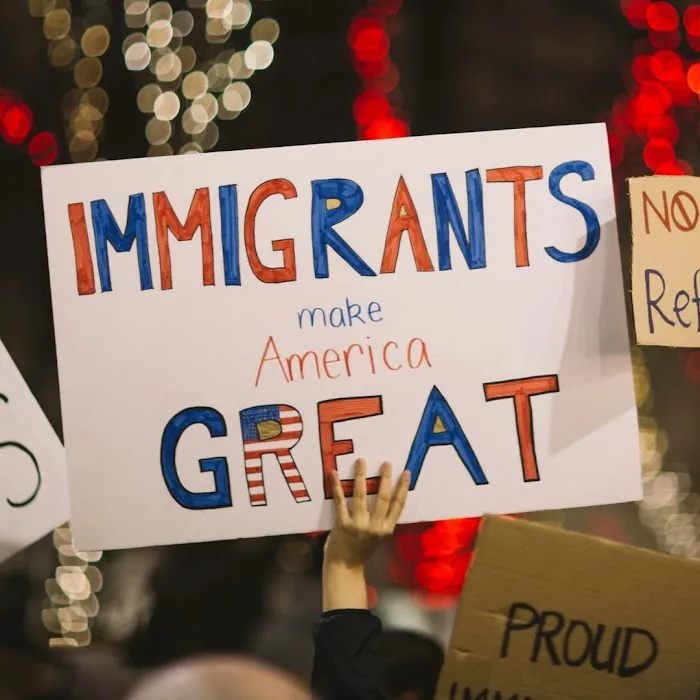 IMMIGRANTS
make
America
GREAT
NO
PROUD